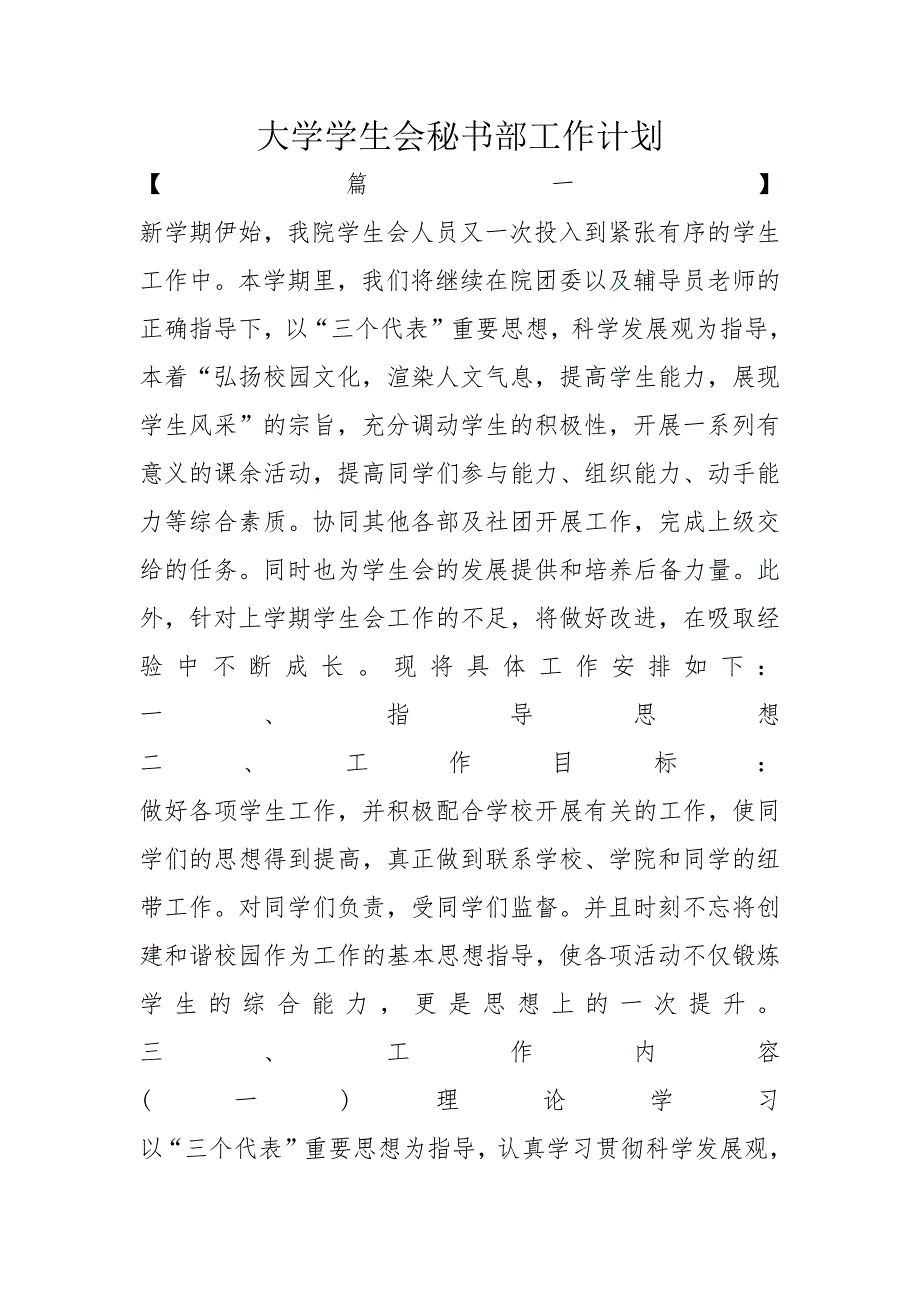 大学学生会秘书部工作计划
【篇一】
新学期伊始，我院学生会人员又一次投入到紧张有序的学生
工作中。本学期里，我们将继续在院团委以及辅导员老师的
正确指导下，以“三个代表”重要思想，科学发展观为指导，
本着“弘扬校园文化，渲染人文气息，提高学生能力，展现
学生风采”的宗旨，充分调动学生的积极性，开展一系列有
意义的课余活动，提高同学们参与能力、组织能力、动手能
力等综合素质。协同其他各部及社团开展工作，完成上级交
给的任务。同时也为学生会的发展提供和培养后备力量。此
外，针对上学期学生会工作的不足，将做好改进，在吸取经
验中不断成长。现将具体工作安排如下：
一、指导思想
二、工作目标：
做好各项学生工作，并积极配合学校开展有关的工作，使同
学们的思想得到提高，真正做到联系学校、学院和同学的纽
带工作。对同学们负责，受同学们监督。并且时刻不忘将创
建和谐校园作为工作的基本思想指导，使各项活动不仅锻炼
学生的综合能力，更是思想上的一次提升。
三、工作内容
(一)理论学习
以“三个代表”重要思想为指导，认真学习贯彻科学发展观，